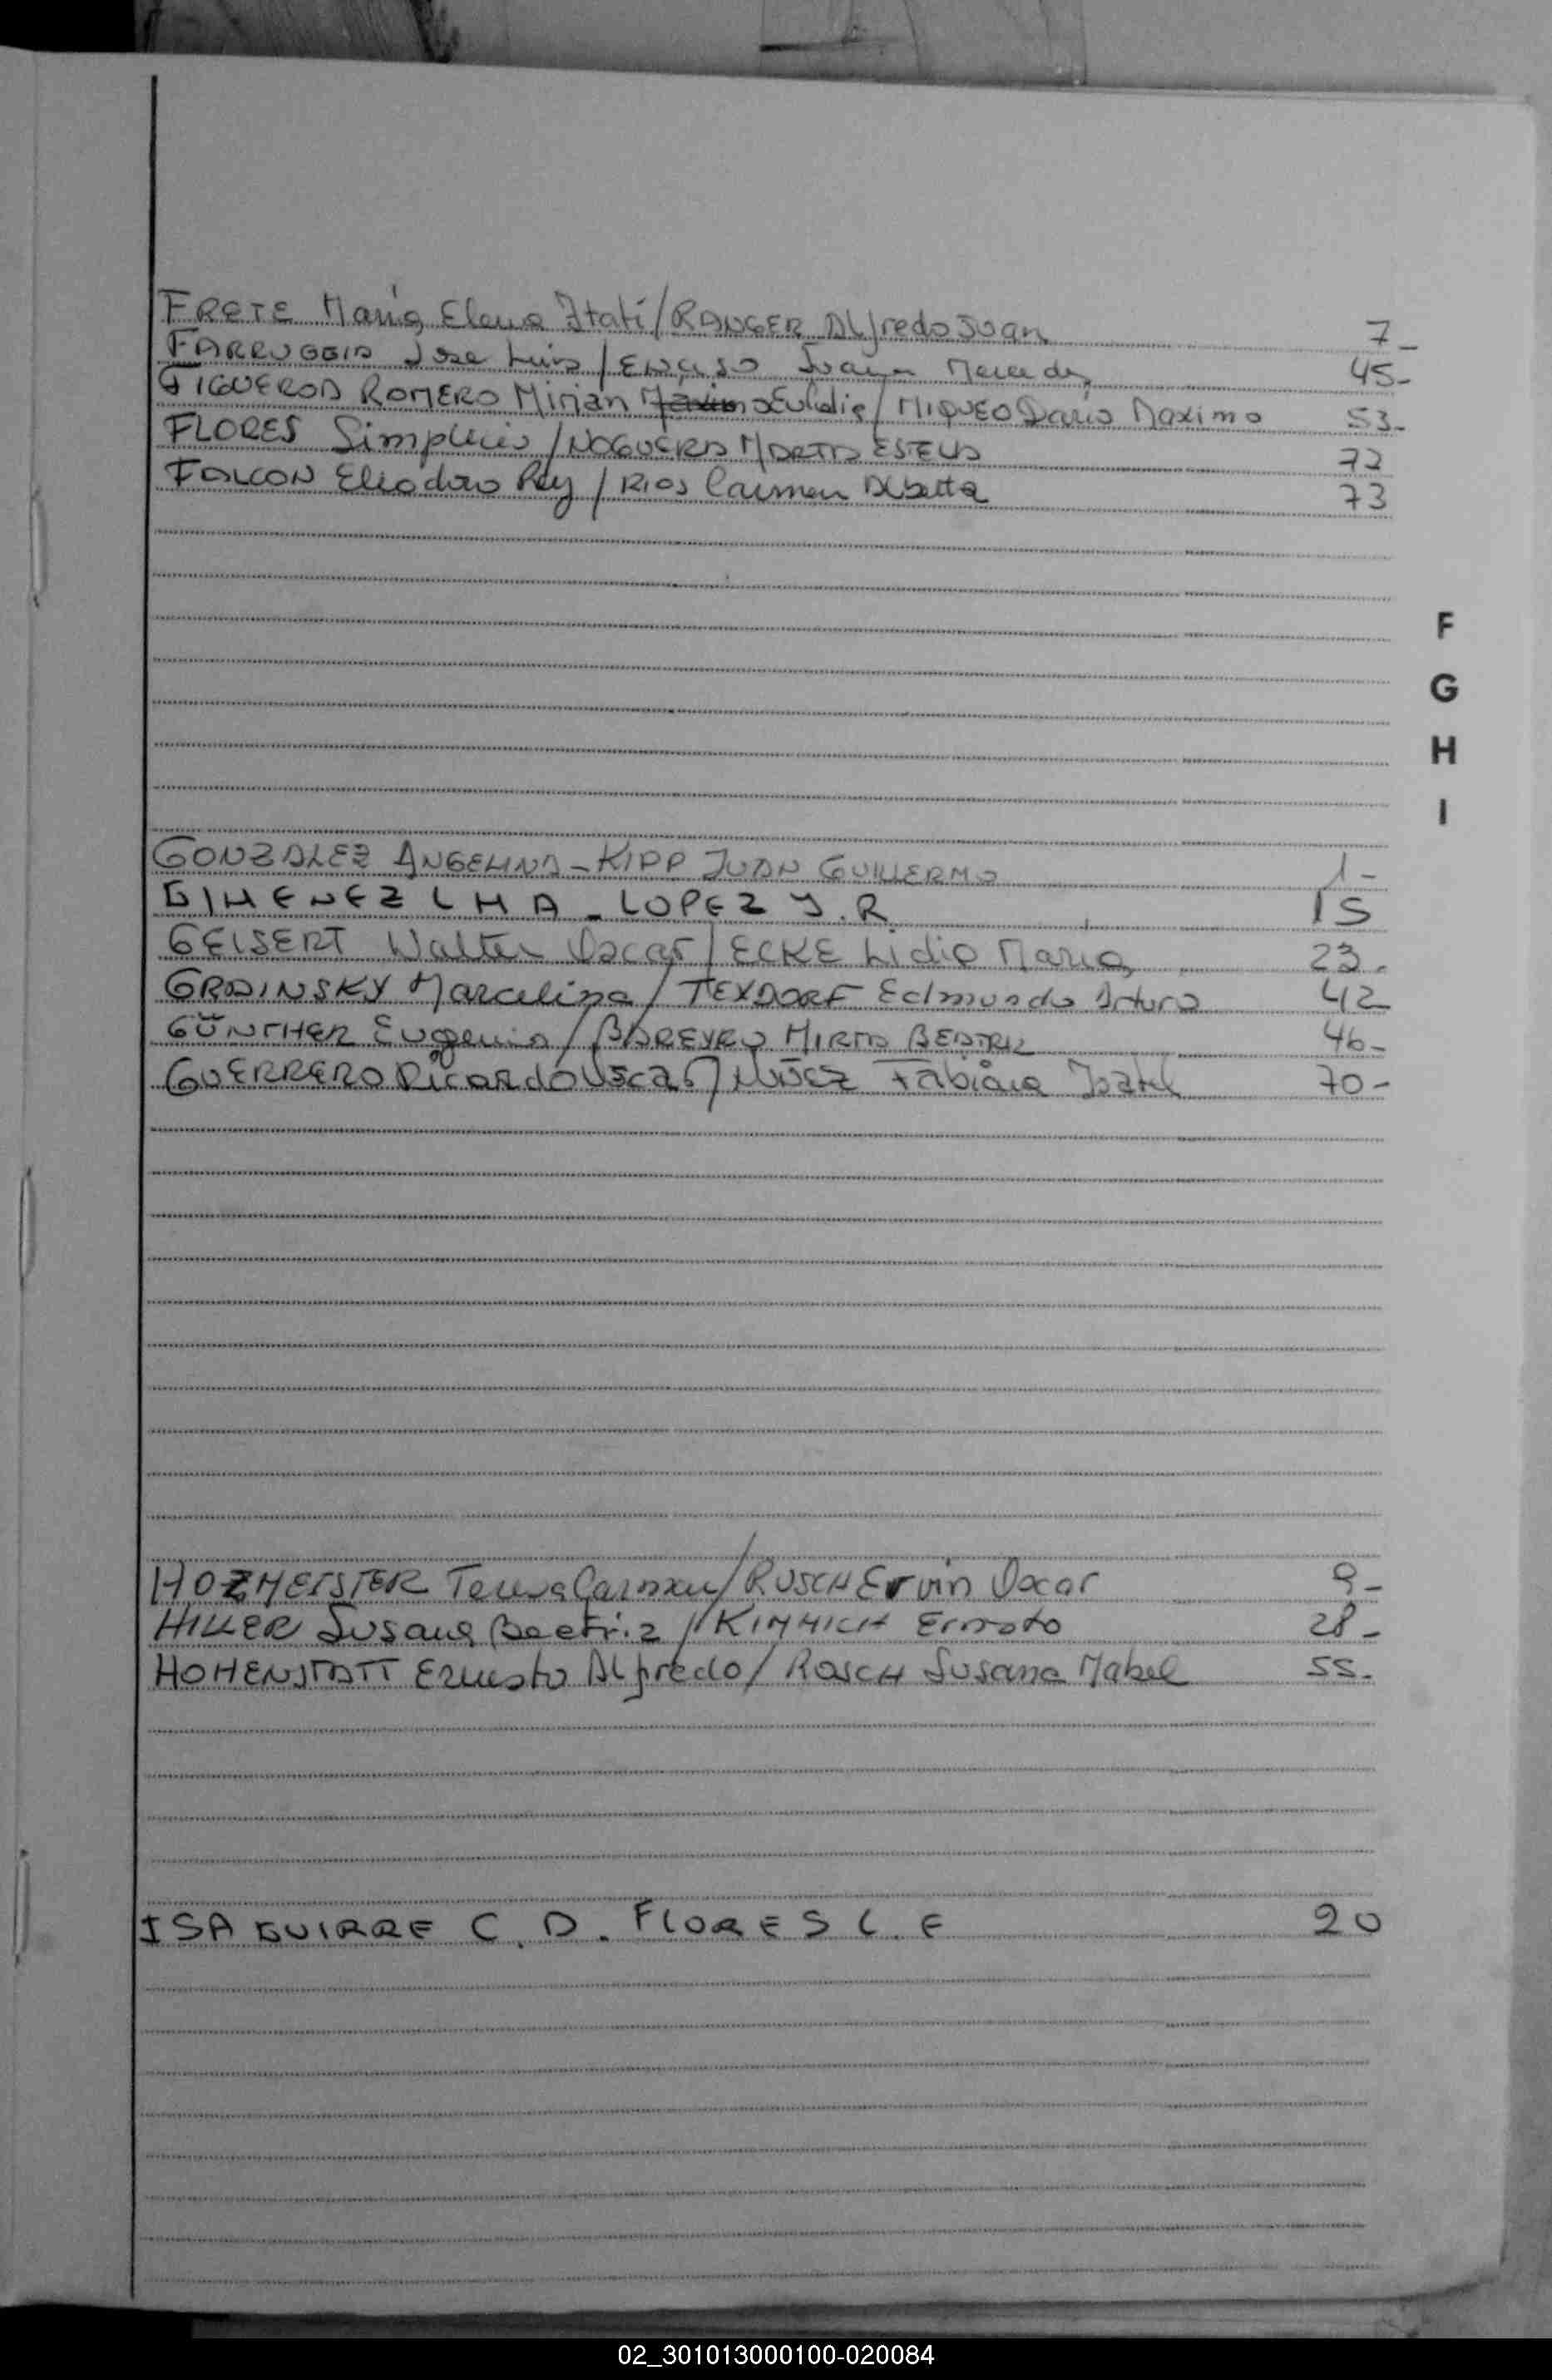 FRETE María Elena Itatí/RANGER Alfredo Juan 7-
FARRUGGIA Jose Luis/ENCISO Juana Mercedes 45-
FIGUEROA ROMERO Mirian Maximo Eulalia/MIQUEO Dario Maximo 53-
FLORES Simplicio/NOGUERA MARTA ESTELA 72
FALCON Eliodoro Rey/RIOS Carmen Albertta 73
F
G
H
I
GONZALEZ ANGELINA-KIPP JUAN GUILLERMO 1-
GIMENEZ L M A - LOPEZ J.R. 15
GEISERT Walter Oscar/ECKE Lidia Maria 23.
GRADINSKY Marcelina/TEXDORF Edmundo Arturo 42
GÜNTHER Eugenio/BAREYRO MIRTA BEATRIZ 46-
GUERRERO Ricardo Oscar/NUÑEZ Fabiana Isabel 70-
HOZMEISTER Teresa Carmen/RUSCH Ervin Oscar 9-
HILLER Susana Beatriz/KIMMICH Ernesto 28-
HOHENSTATT Ernesto Alfredo/RASCH Susana Mabel 55.
ISAGUIRRE C.D. FLORES L.E 20
02_301013000100-020084